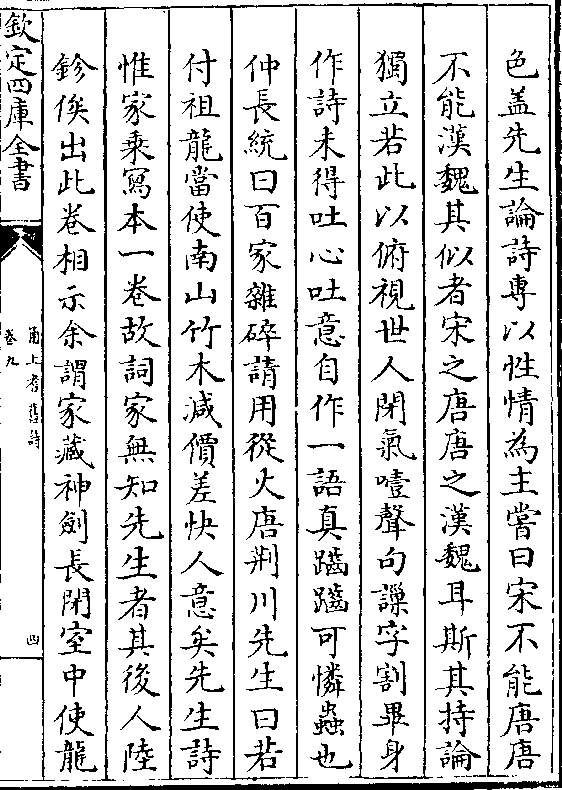 色盖先生論詩專以性情為主嘗曰宋不能唐唐
不能漢魏其似者宋之唐唐之漢魏耳斯其持論
獨立若此以俯視世人閉氣噎聲句謀字割畢身
作詩未得吐心吐意自作一語真躋躋可憐蟲也
仲長統曰百家雜碎請用從火唐荆川先生曰若
付祖龍當使南山竹木減價差快人意矣先生詩
惟家乘寫本一卷故詞家無知先生者其後人陸
鉁俟出此卷相示余謂家藏神劍長閉室中使龍
欽定四庫全書
甬上耆舊詩
卷九
四